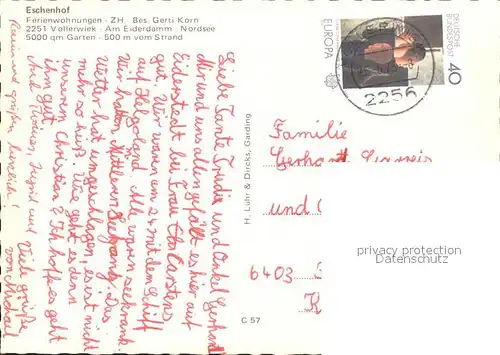 Eschenhof
Ferienwohnungen - ZH. Bes. Gerti Korn
2251 Vollerwiek · Am Eiderdamm · Nordsee
5000 qm Garten - 500 m vom Strand
Liebe Tante Trudie und Onkel Gerhard
Mir und uns allen gefällt es hier auf
Eiderstedt bei Frau Carstens
gut. Wir waren am 2. mit dem Schiff
auf Helgoland. Alle waren seekrank.
Wir hatten Mittleren Seegang. Das
Wetter hat umgeschlagen, es ist nicht
mehr so heiß. Wie geht es denn
unserem Christian? Ich hoffe es geht
ihm gut. Viele Grüße
und von Michael
grüßen herzlich!
H. Lühr & Dircks, Garding
C 57
EUROPA
DEUTSCHE
BUNDESPOST
40
2256
Familie
Gerhardt
und
6403
K
privacy protection
Datenschutz